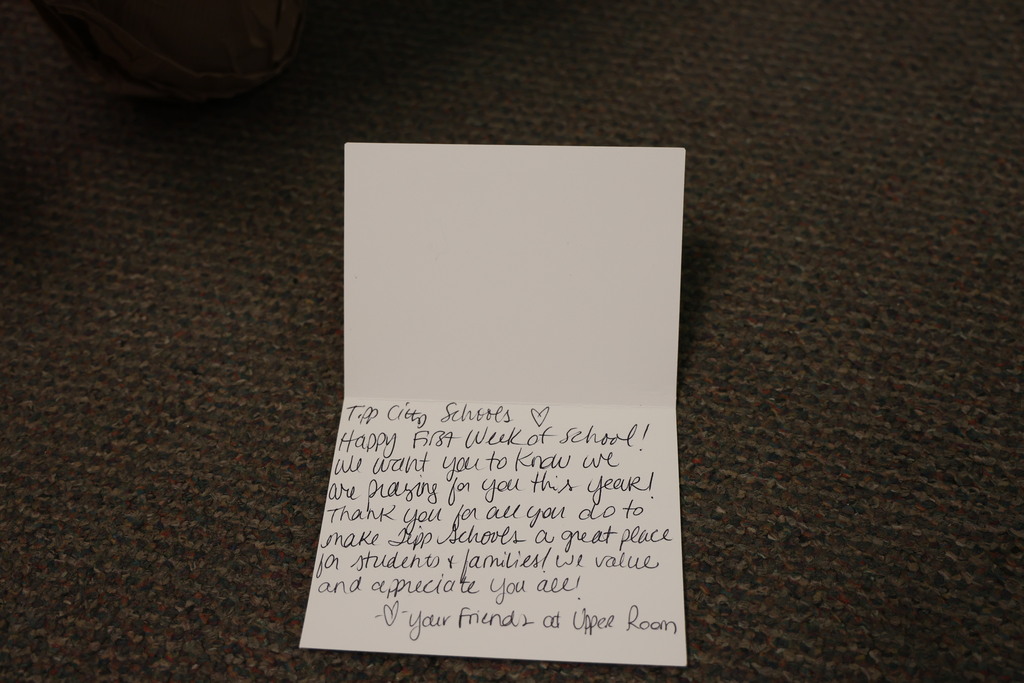 Tipp City Schools ♡
Happy First Week of School!
We want you to know we
are praying for you this year!
Thank you for all you do to
make Tipp Schools a great place
for students + families! We value
and appreciate you all!
-♡- your friends at Upper Room